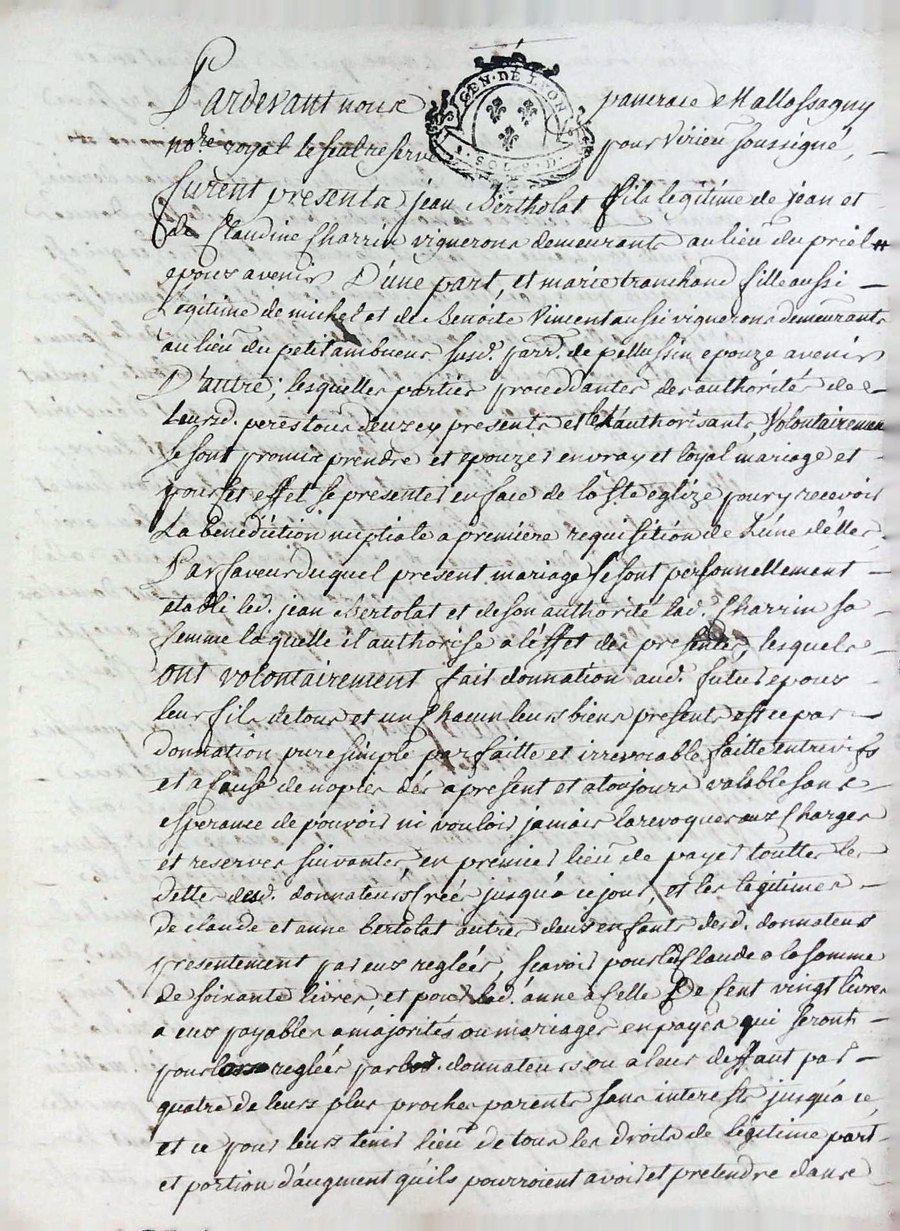 Pardevant nous pancrace Mallassagny
no.re royal le seul reservé pour Virieu soussigné,
GEN. DE LYON
furent presents jean Bertholat fils legitime de jean et
de Claudine Charrin vignerons demeurants au lieu du priel
epoux avenir D'une part, et marie tranchand fille aussi
Legitime de michel et de Benoite Vincent aussi vignerons demeurants
au lieu du petit ambuens susd. parr. de pellussin epouze avenir
D'autre; lesquelles parties proceddantes des authorités de
Leursd. peres tous deux ey presents et les authorisants Volontairemen
se sont promis prendre et epouzer en vray et loyal mariage et
pour cet effet se presenter en face de la Ste eglize pour y recevoir
La benediction nuptiale a premiere requisition de L'une d'elles,
Par faveur duquel present mariage se sont personnellement
etabli led. jean Bertolat et de son authorité lad. Charrin sa
femme laquelle il authorise a l'effet des presentes, lesquels
ont volontairement fait donnation aud. futur epoux
leur fils de tous et un chacun leurs biens presents et ce par
donnation pure simple parfaitte et irrevocable faitte entre vifs
et a cause de nopces dés apresent et a toujours valable sans
esperance de pouvoir ni vouloir jamais la revoquer aux Charges
et reserves suivantes, en premier lieu de payer touttes les
dette desd. donnateurs créé jusqu'a ce jour, et les legitimes
de claude et anne Bertolat autres deux enfants desd. donnateurs
presentement par eux reglées, scavoir pour led. Claude a la somme
de soixante livres, et pour lad. anne a celle De cent vingt livres
a eux payables a majorités ou mariages en payes qui seront
pour lors reglées par lesd. donnateurs ou a leur deffaut par
quatre de leurs plus proches parents sans interests jusqu'a ce,
et ce pour leurs tenir lieu de tous les droits de legitime part
et portion d'augment qu'ils pourroient avoir et pretendre dans